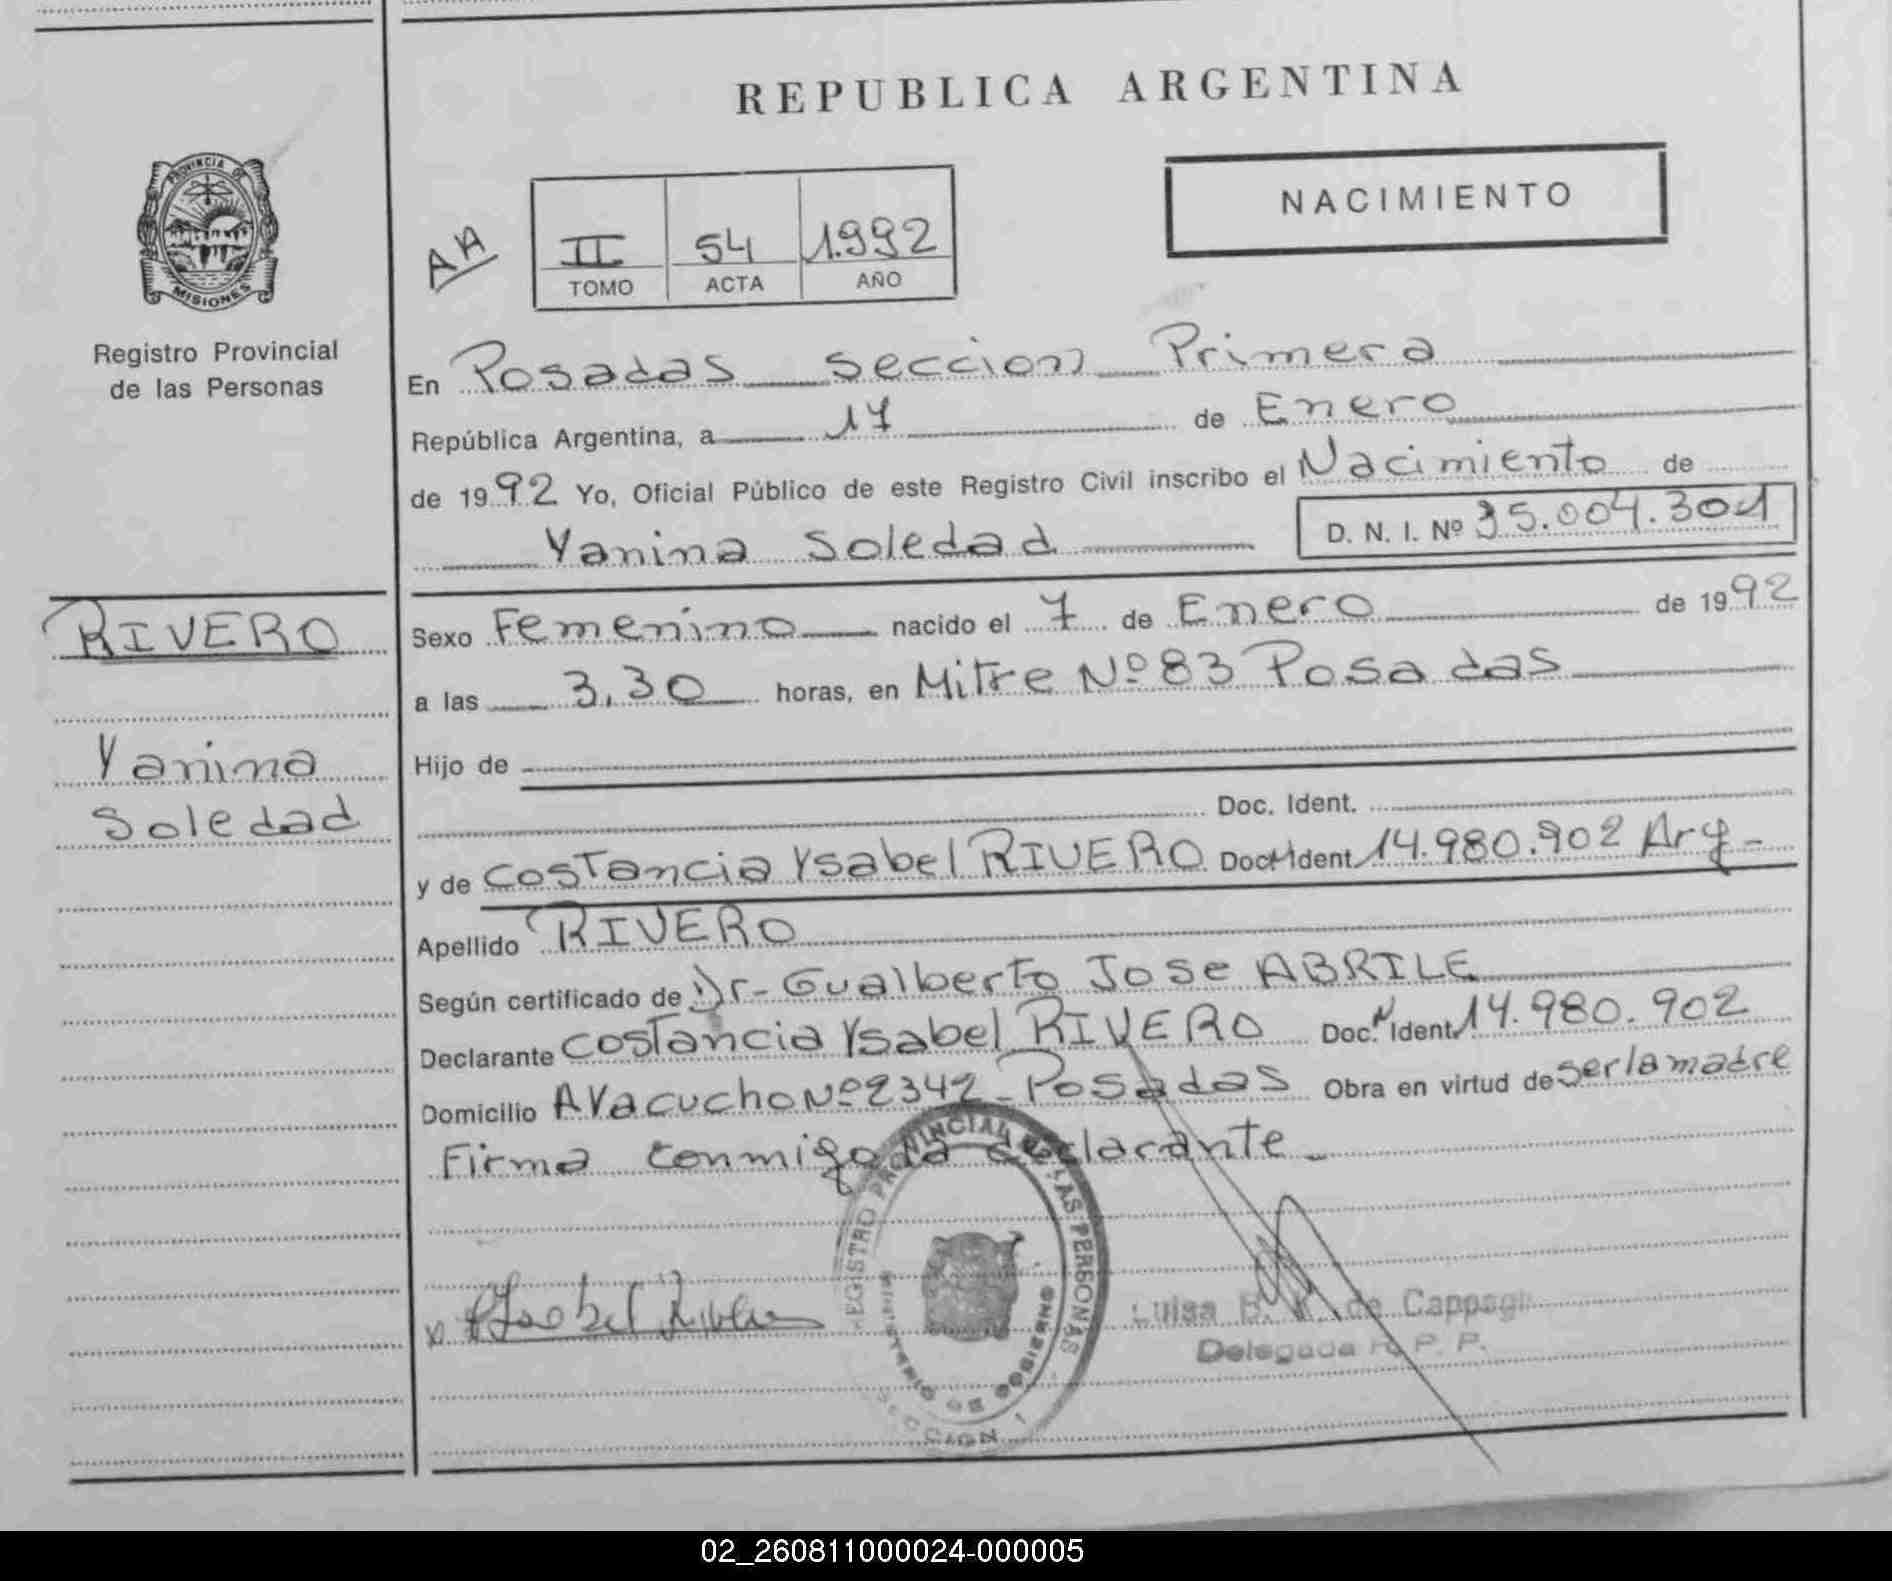 REPUBLICA ARGENTINA
NACIMIENTO
AA
II 54 1.992
TOMO ACTA AÑO
PROVINCIA DE MISIONES
Registro Provincial
de las Personas
RIVERO
Yanina
Soledad
En Posadas seccion Primera
República Argentina, a 17 de Enero
de 1992 Yo, Oficial Público de este Registro Civil inscribo el Nacimiento de
Yanina Soledad D. N. I. Nº 35.004.301
Sexo Femenino nacido el 7 de Enero de 1992
a las 3,30 horas, en Mitre Nº 83 Posadas
Hijo de
Doc. Ident.
y de Costancia Ysabel RIVERO Doc. Ident. 14.980.902 Arg-
Apellido RIVERO
Según certificado de Dr- Gualberto Jose ABRILE
Declarante Costancia Ysabel RIVERO Doc. Ident. 14.980.902
Domicilio AYacucho Nº 2342 - Posadas Obra en virtud de ser la madre
Firma conmigo la declarante-
REGISTRO PROVINCIAL DE LAS PERSONAS
MINISTERIO DE GOBIERNO
Luisa B. de
Delegada R. P. P.
02_260811000024-000005